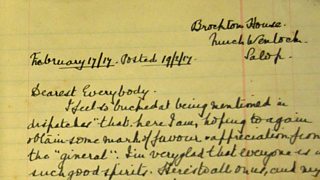 Brockton House.
Much Wenlock.
Salop.
February 17/17. Posted 19/2/17.
Dearest Everybody.
I feel so bucked at being mentioned in
dispatches" that here I am, hoping to again
obtain some mark of favour & appreciation from
the "general". I'm very glad that everyone is in
such good spirits. Here's to all ones, and my